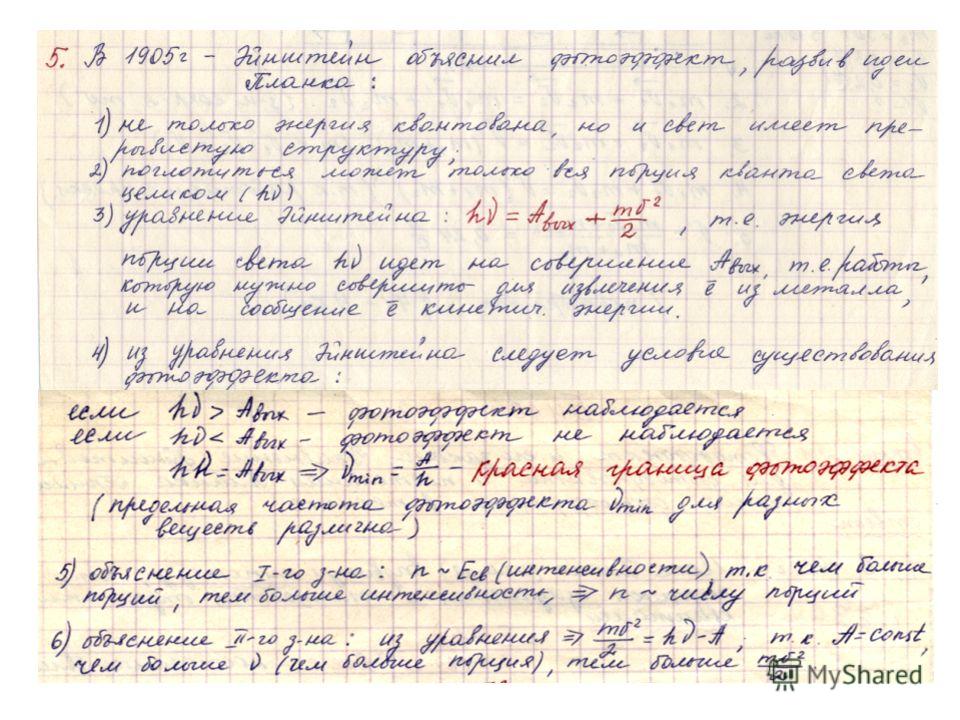 5. В 1905г – Эйнштейн объяснил фотоэффект, развив идеи
Планка:
1) не только энергия квантована, но и свет имеет пре-
рывистую структуру;
2) поглотиться может только вся порция кванта света
целиком (hν)
3) уравнение Эйнштейна: hν = Aвых + mv²/2, т.е. энергия
порции света hν идет на совершение Aвых, т.е. работы,
которую нужно совершить для извлечения ē из металла,
и на сообщение ē кинетич. энергии.
4) из уравнения Эйнштейна следует условие существования
фотоэффекта:
если hν > Aвых – фотоэффект наблюдается
если hν < Aвых – фотоэффект не наблюдается
hν = Aвых ⇒ νmin = A/h – красная граница фотоэффекта
(предельная частота фотоэффекта νmin для разных
веществ различна)
5) объяснение I-го з-на: n ~ Eсв (интенсивности), т.к. чем больше
порций, тем больше интенсивность, ⇒ n ~ числу порций
6) объяснение II-го з-на: из уравнения ⇒ mv²/2 = hν – A; т.к. A = const,
чем больше ν (чем больше порция), тем больше mv²/2.
MyShared